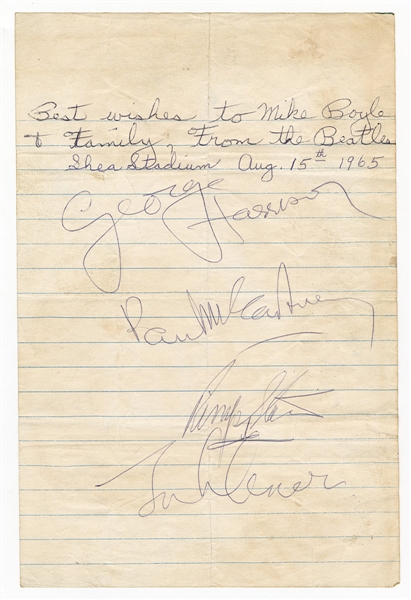 Best wishes to Mike Boyle
& Family, From the Beatles
Shea Stadium Aug. 15th 1965
George
Harrison
Paul McCartney